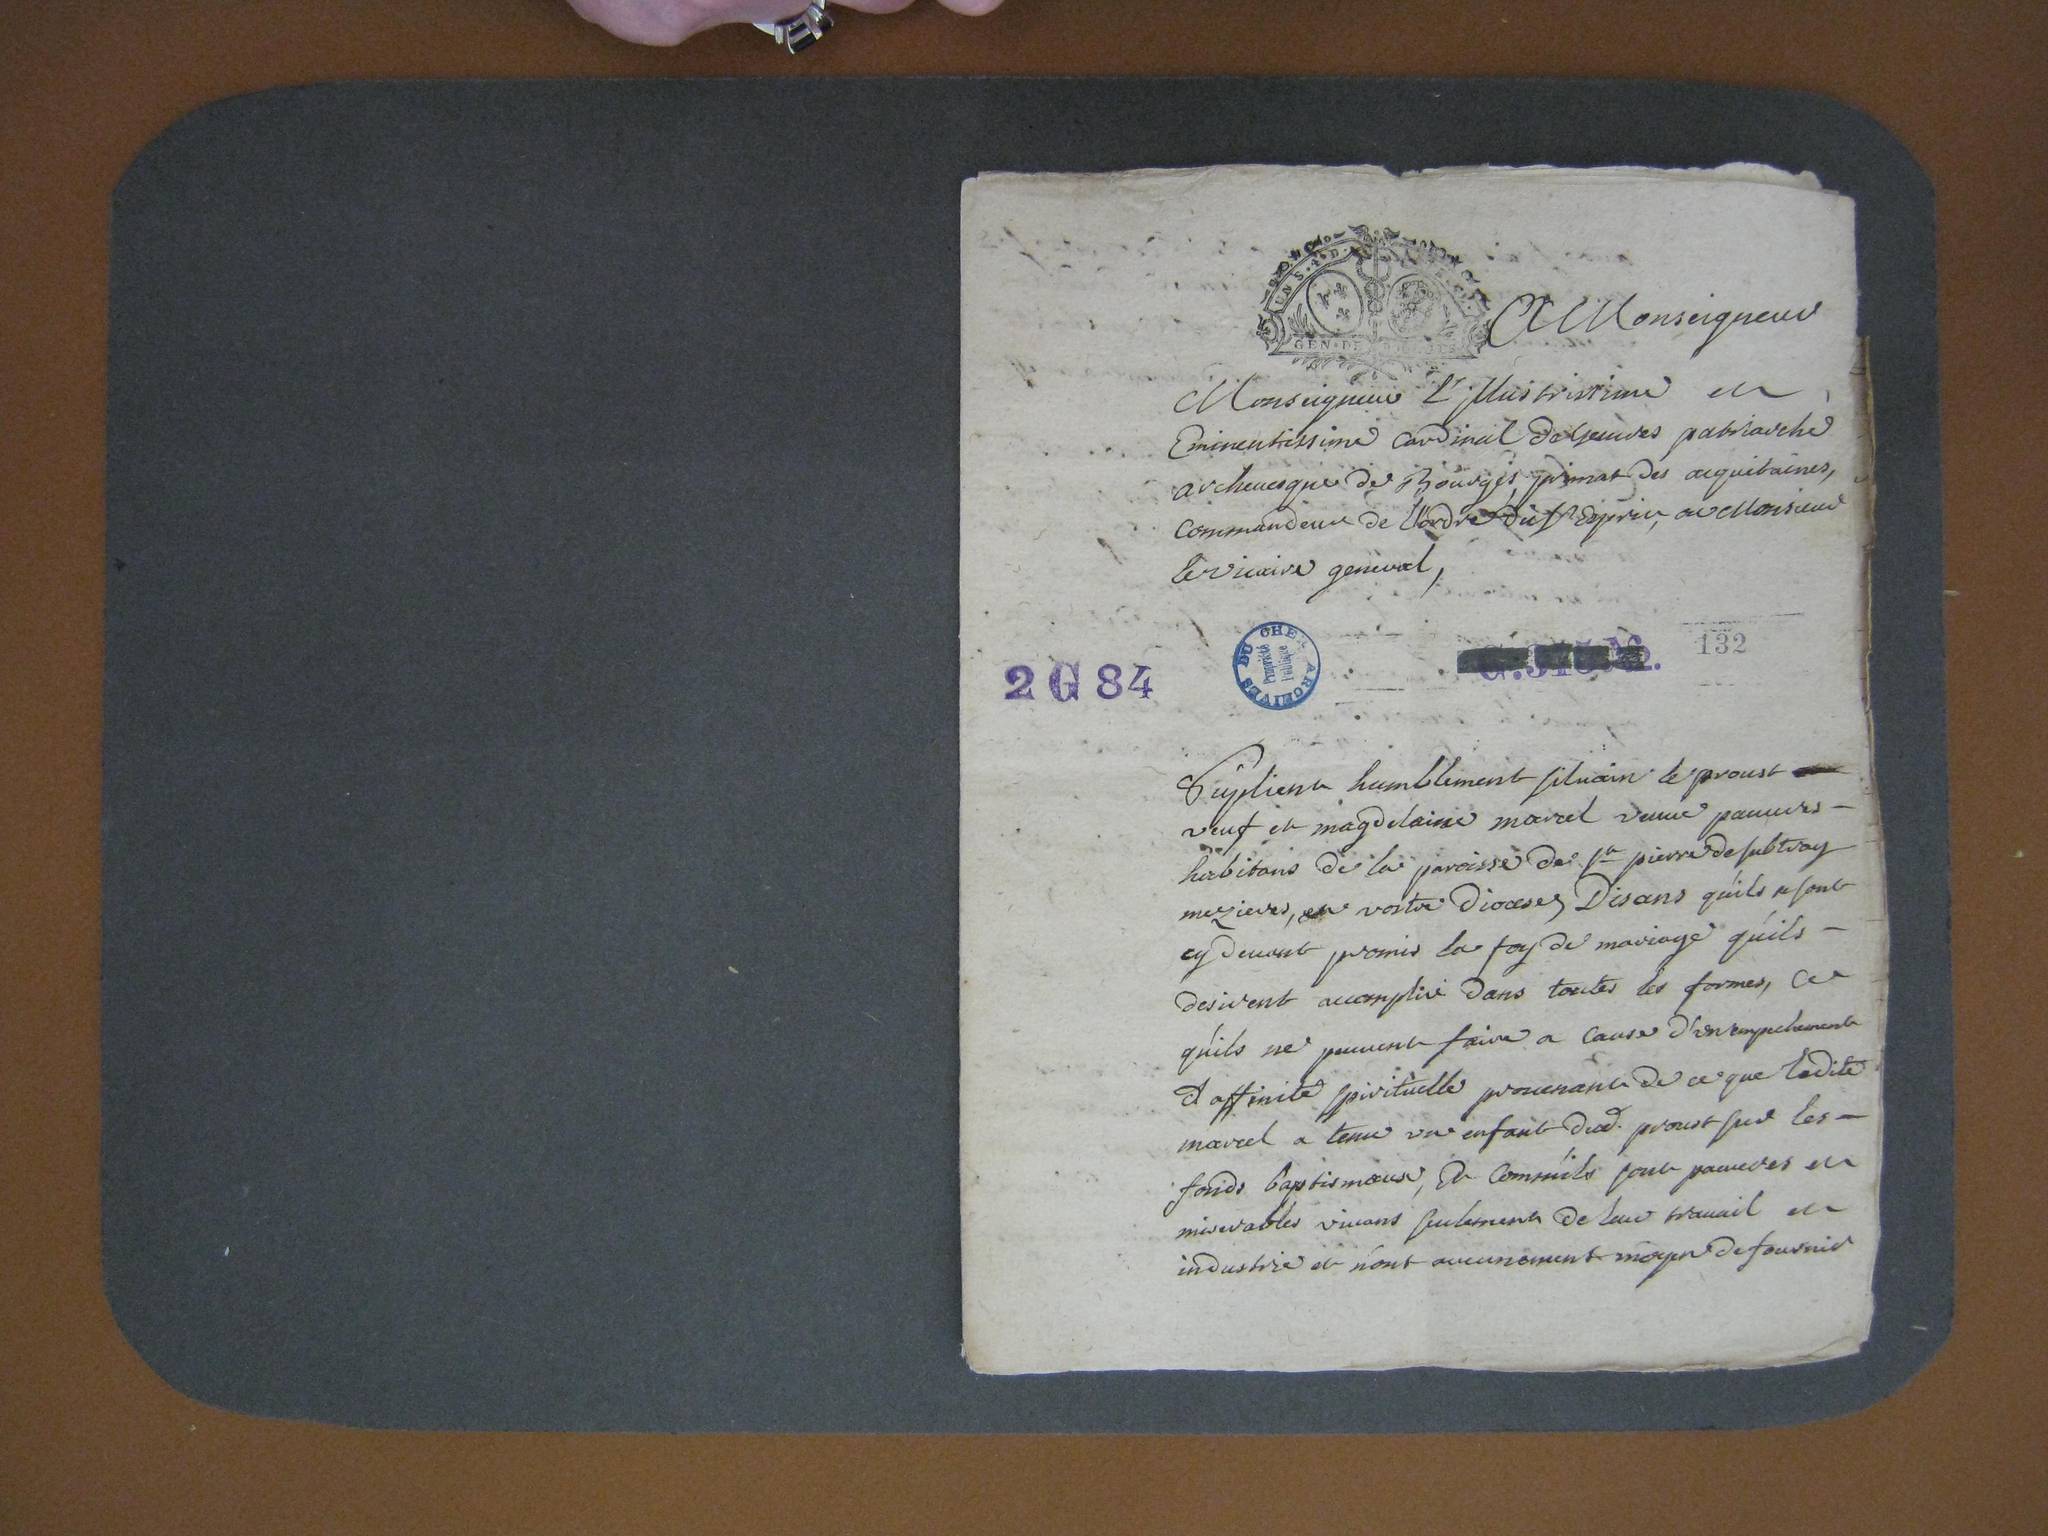 UN S. 4. D.
GEN. DE BOURGES
A Monseigneur
Monseigneur L'jllustrissime et
Eminentissime cardinal de Gesvres patriarche
archevesque de Bourges, primat des acquitaines,
Commandeur de l'ordre du St Esprit, ou Monsieur
le vicaire general,
ARCHIVES DU CHER
Propriété
Publique
132
2 G 84
Suplient humblement silvain le proust
veuf et magdelaine marcel veuve pauvres
habitans de la paroisse de St pierre de subtray
mezieres, en vostre diocese, Disans qu'ils se sont
cy devant promis la foy de mariage qu'ils
desirent accomplir dans toutes les formes, Ce
qu'ils ne peuvent faire a cause d'un empechement
d'affinité spirituelle provenant de ce que ladite
marcel a tenu un enfant dud. proust sur les
fonds baptismaux, Et Comm'ils sont pauvres et
miserables vivans seulement de leur travail et
industrie et n'ont aucunement moyen de fournir